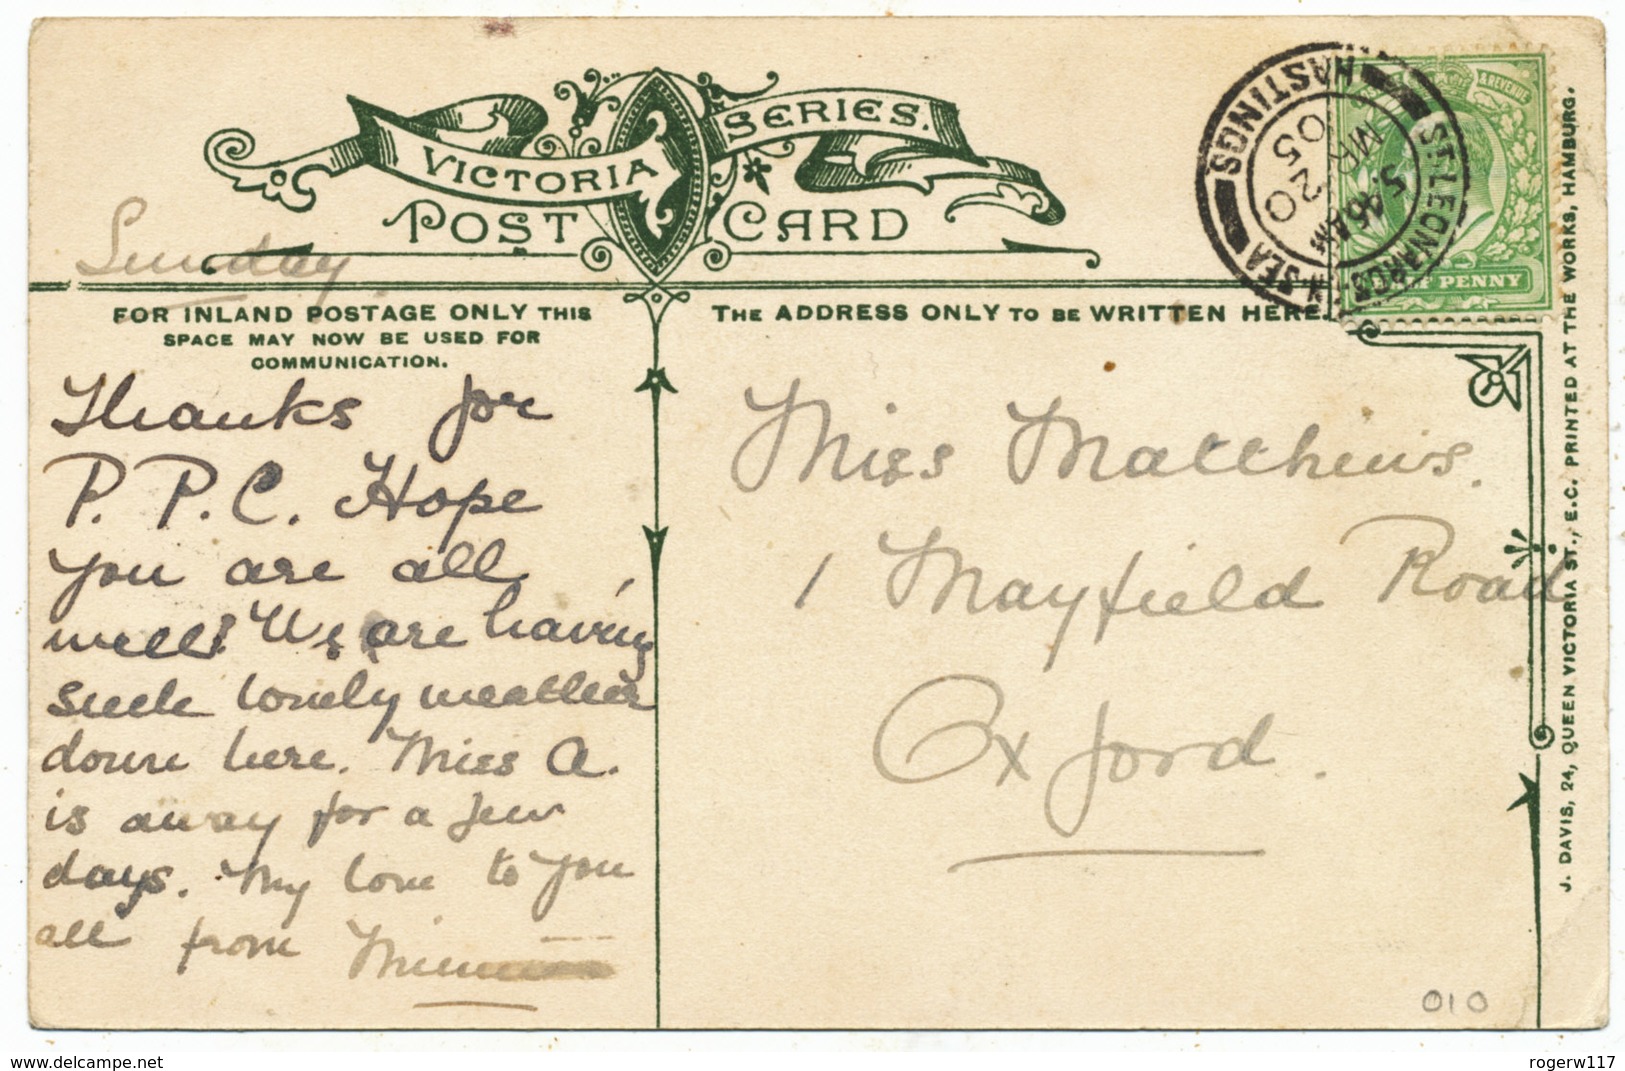 VICTORIA SERIES.
POST CARD
Sunday.
FOR INLAND POSTAGE ONLY THIS
SPACE MAY NOW BE USED FOR
COMMUNICATION.
Thanks for
P. P. C. Hope
you are all
well! We are having
such lovely weather
down here. Miss A.
is away for a few
days. My love to you
all from
THE ADDRESS ONLY TO BE WRITTEN HERE.
Miss Matthews.
1 Mayfield Road
Oxford.
ST. LEONARDS ON SEA
HASTINGS
5.46 AM
MR 20
05
REVENUE
PENNY
J. DAVIS, 24, QUEEN VICTORIA ST., E.C. PRINTED AT THE WORKS, HAMBURG.
010
www.delcampe.net
rogerw117